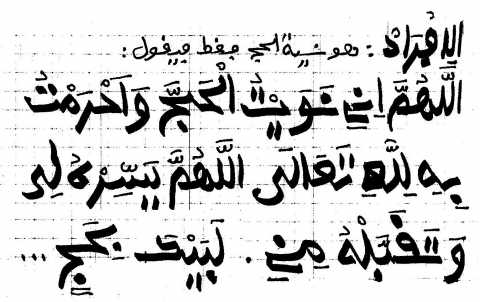 الإفراد : وهو نية الحج فقط فيقول :
اللَّهُمَّ إِنِّي نَوَيْتُ الْحَجَّ وَأَحْرَمْتُ
بِهِ لِلَّهِ تَعَالَى اللَّهُمَّ يَسِّرْهُ لِي
وَتَقَبَّلْهُ مِنِّي . لَبَّيْكَ بِحَجٍّ ...